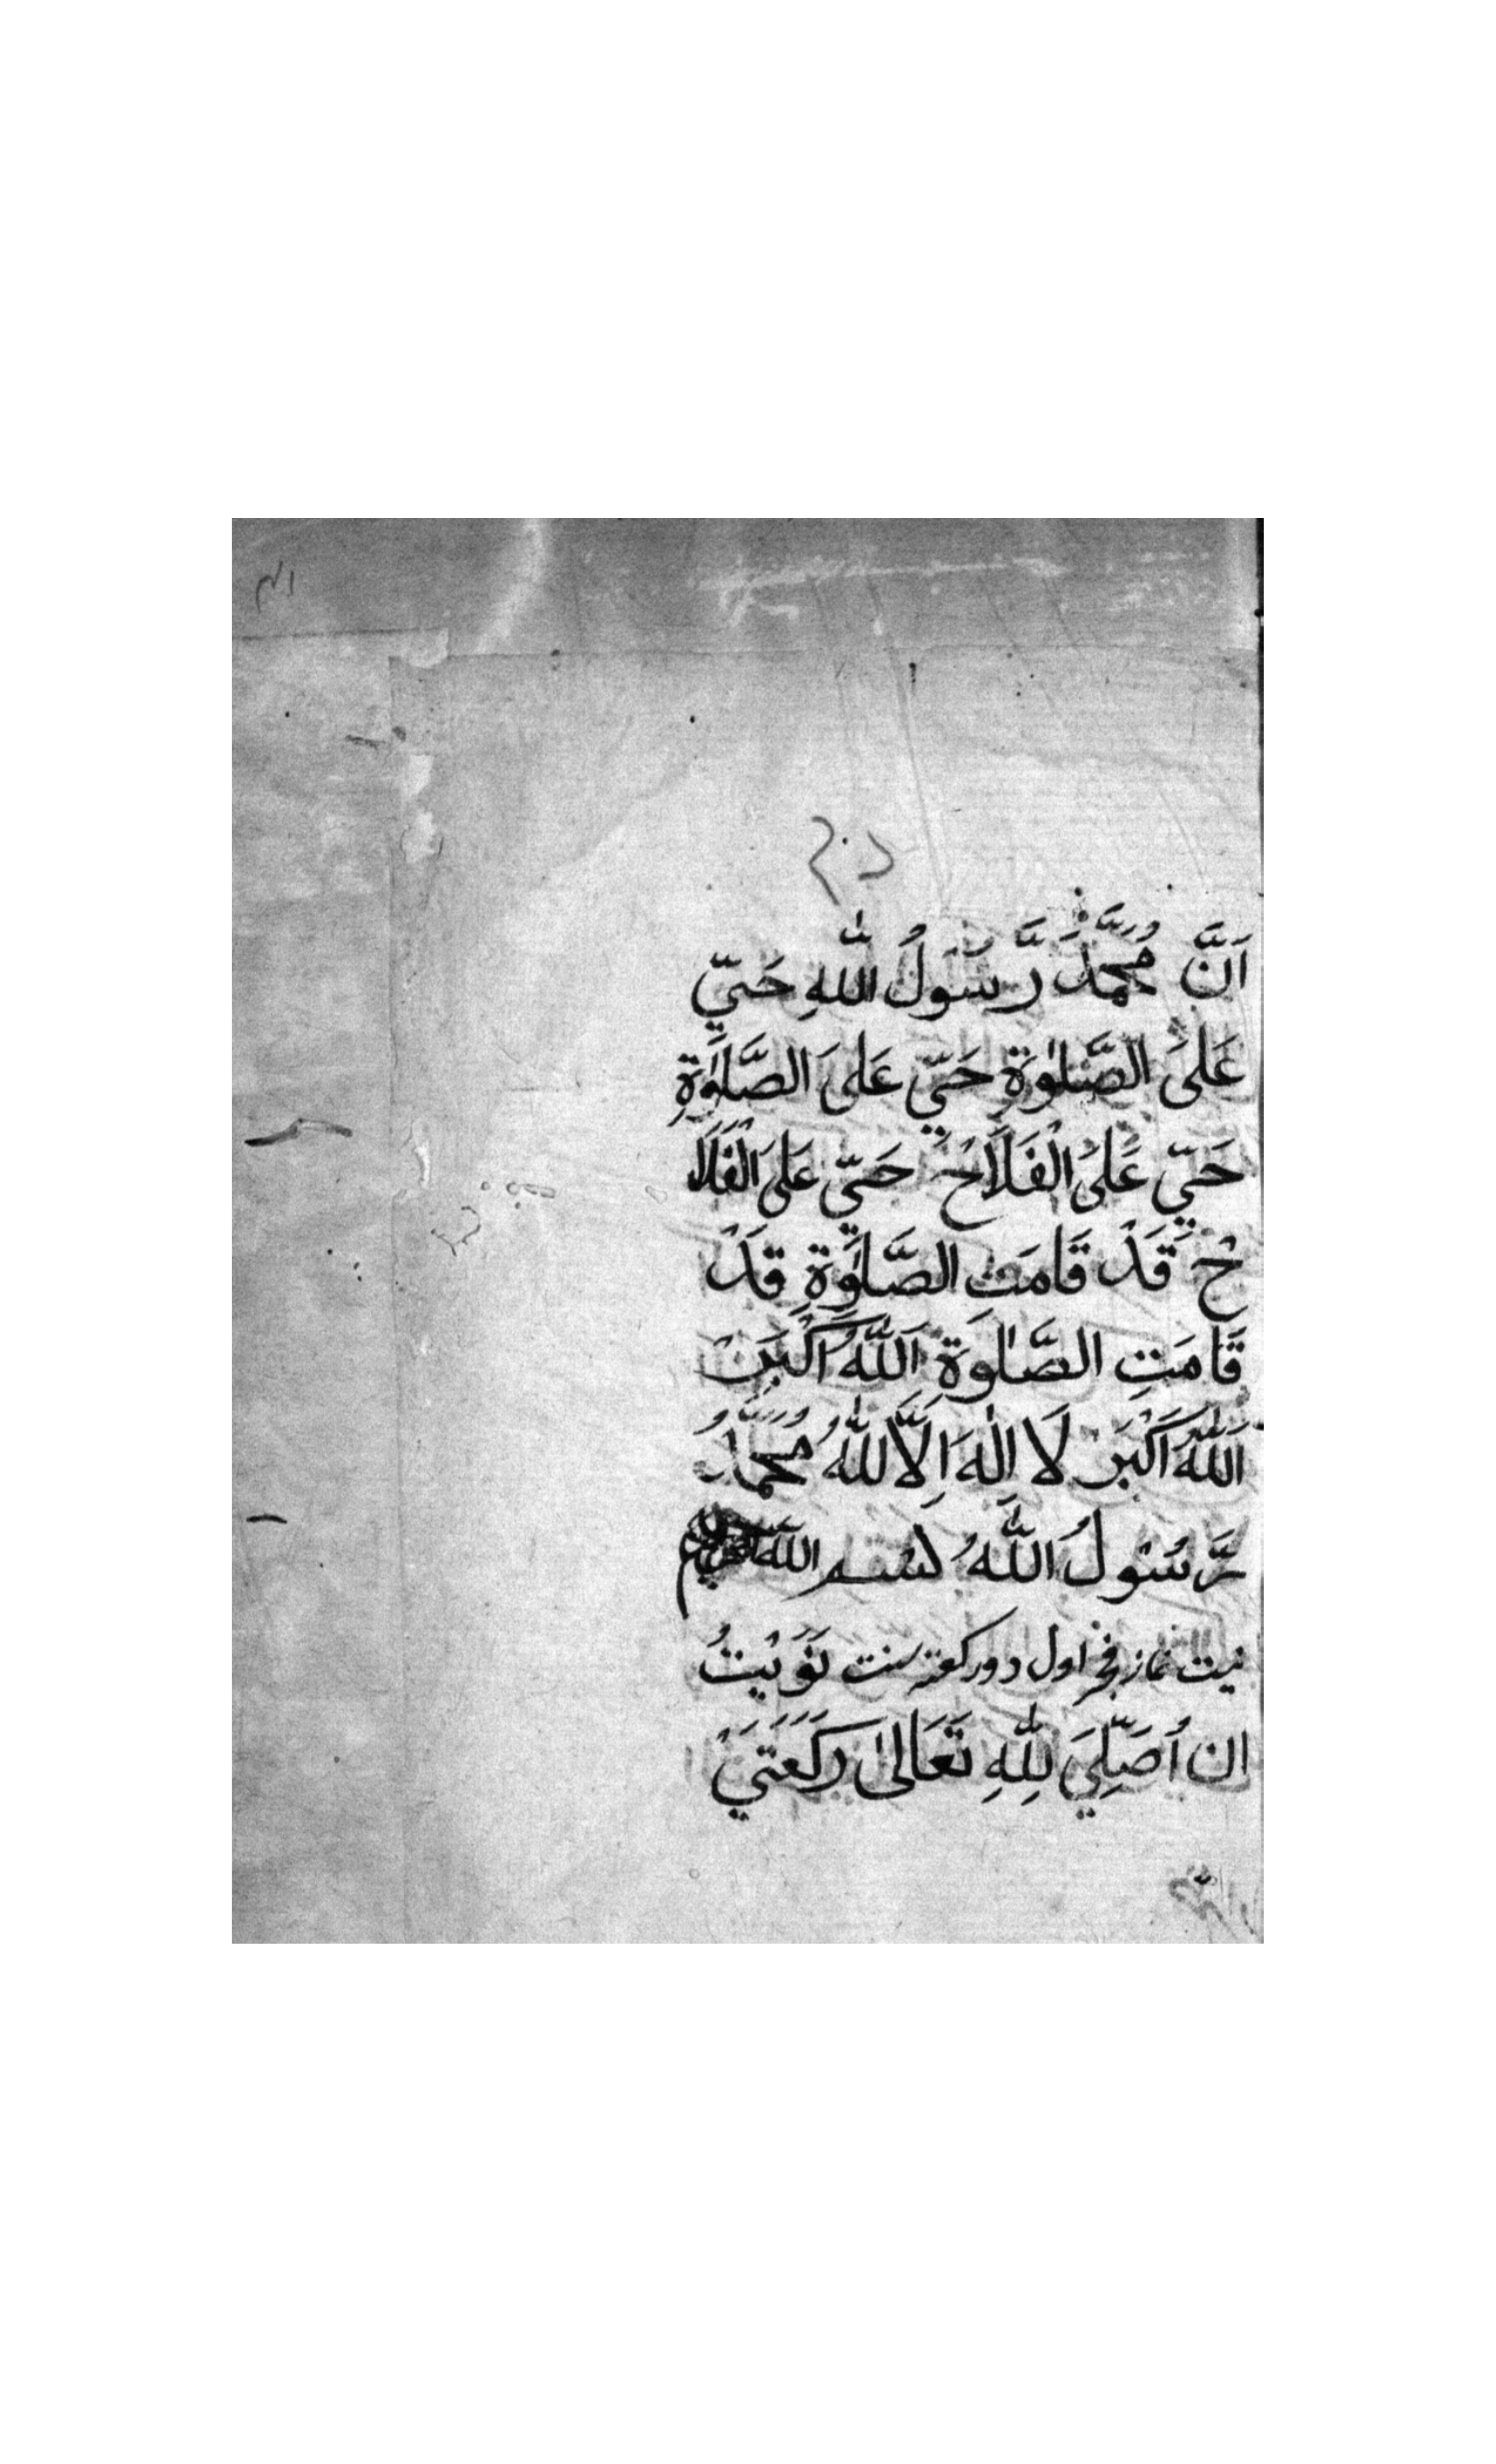 اَنَّ مُحَمَّدُ رَّسَوَلُ اللّٰهِ حَيّ
عَلَىَ الصَّلٰوةِ حَيّ عَلىَ الصَّلَوٰةِ
حَيّ عَلىُ الْفَلَاَحْ حَيّ عَلىَ الْفَلَا
حْ قَدْ قَامَت الصَّلَوٰةِ قَدْ
قَامَتِ الصَّلٰوةَ اَللّٰهُ اَكْبَرْ
اَللّٰهُ اَكْبَرْ لَا اِلٰهَ اِلَّا للّٰهُ مُحَمَّدُ
رَّسُولُ اللّٰهُ بسم الله
نيت نماز فجر اول دو ركعت سنت نَوَيْتُ
ان اُصَلِّيَ لِلّٰهِ تَعَالىٰ رَكَعَتَيْ